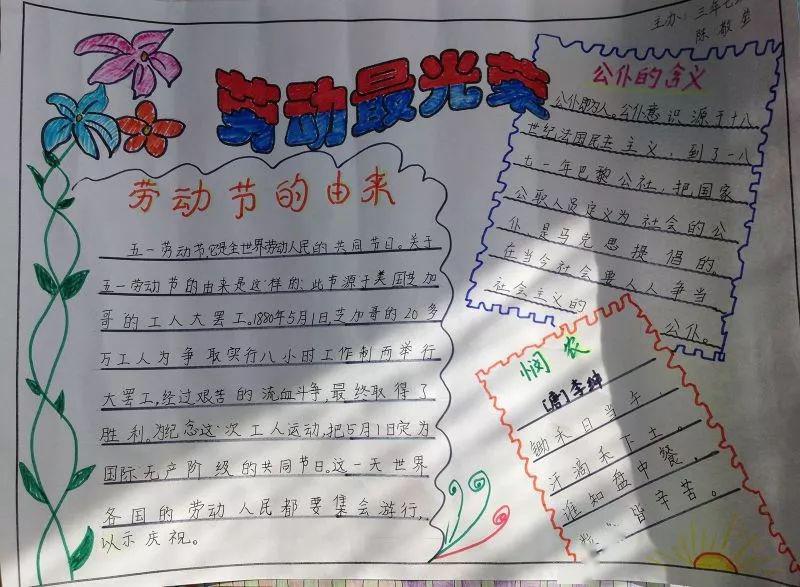 主办:三年七
陈敬
劳动最光荣
劳动节的由来
五一劳动节,它是全世界劳动人民的共同节日。关于
五一劳动节的由来是这样的:此节源于美国芝加
哥的工人大罢工。1880年5月1日,芝加哥的20多
万工人为争取实行八小时工作制而举行
大罢工,经过艰苦的流血斗争,最终取得了
胜利。为纪念这次工人运动,把5月1日定为
国际无产阶级的共同节日。这一天世界
各国的劳动人民都要集会游行,
以示庆祝。
公仆的含义
公仆即为人。公仆意识源于十八
世纪法国民主主义,到了一八
七一年巴黎公社,把国家
公职人员定义为社会的公
仆.是马克思提倡的
在当今社会要人人争当
社会主义的
公仆。
悯农
[唐]李绅
锄禾日当午,
汗滴禾下土。
谁知盘中餐,
皆辛苦。